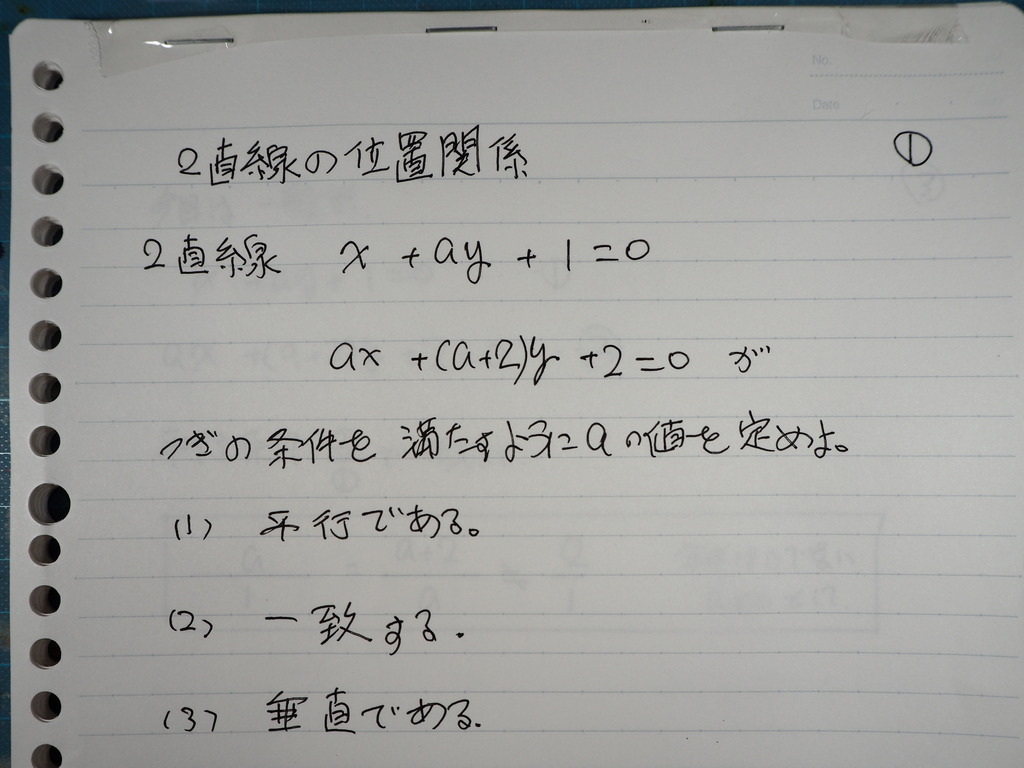 No.
Date
2直線の位置関係 ①
2直線 x + ay + 1 = 0
ax + (a+2)y + 2 = 0 が
つぎの条件を満たすようにaの値を定めよ。
(1) 平行である。
(2) 一致する.
(3) 垂直である.